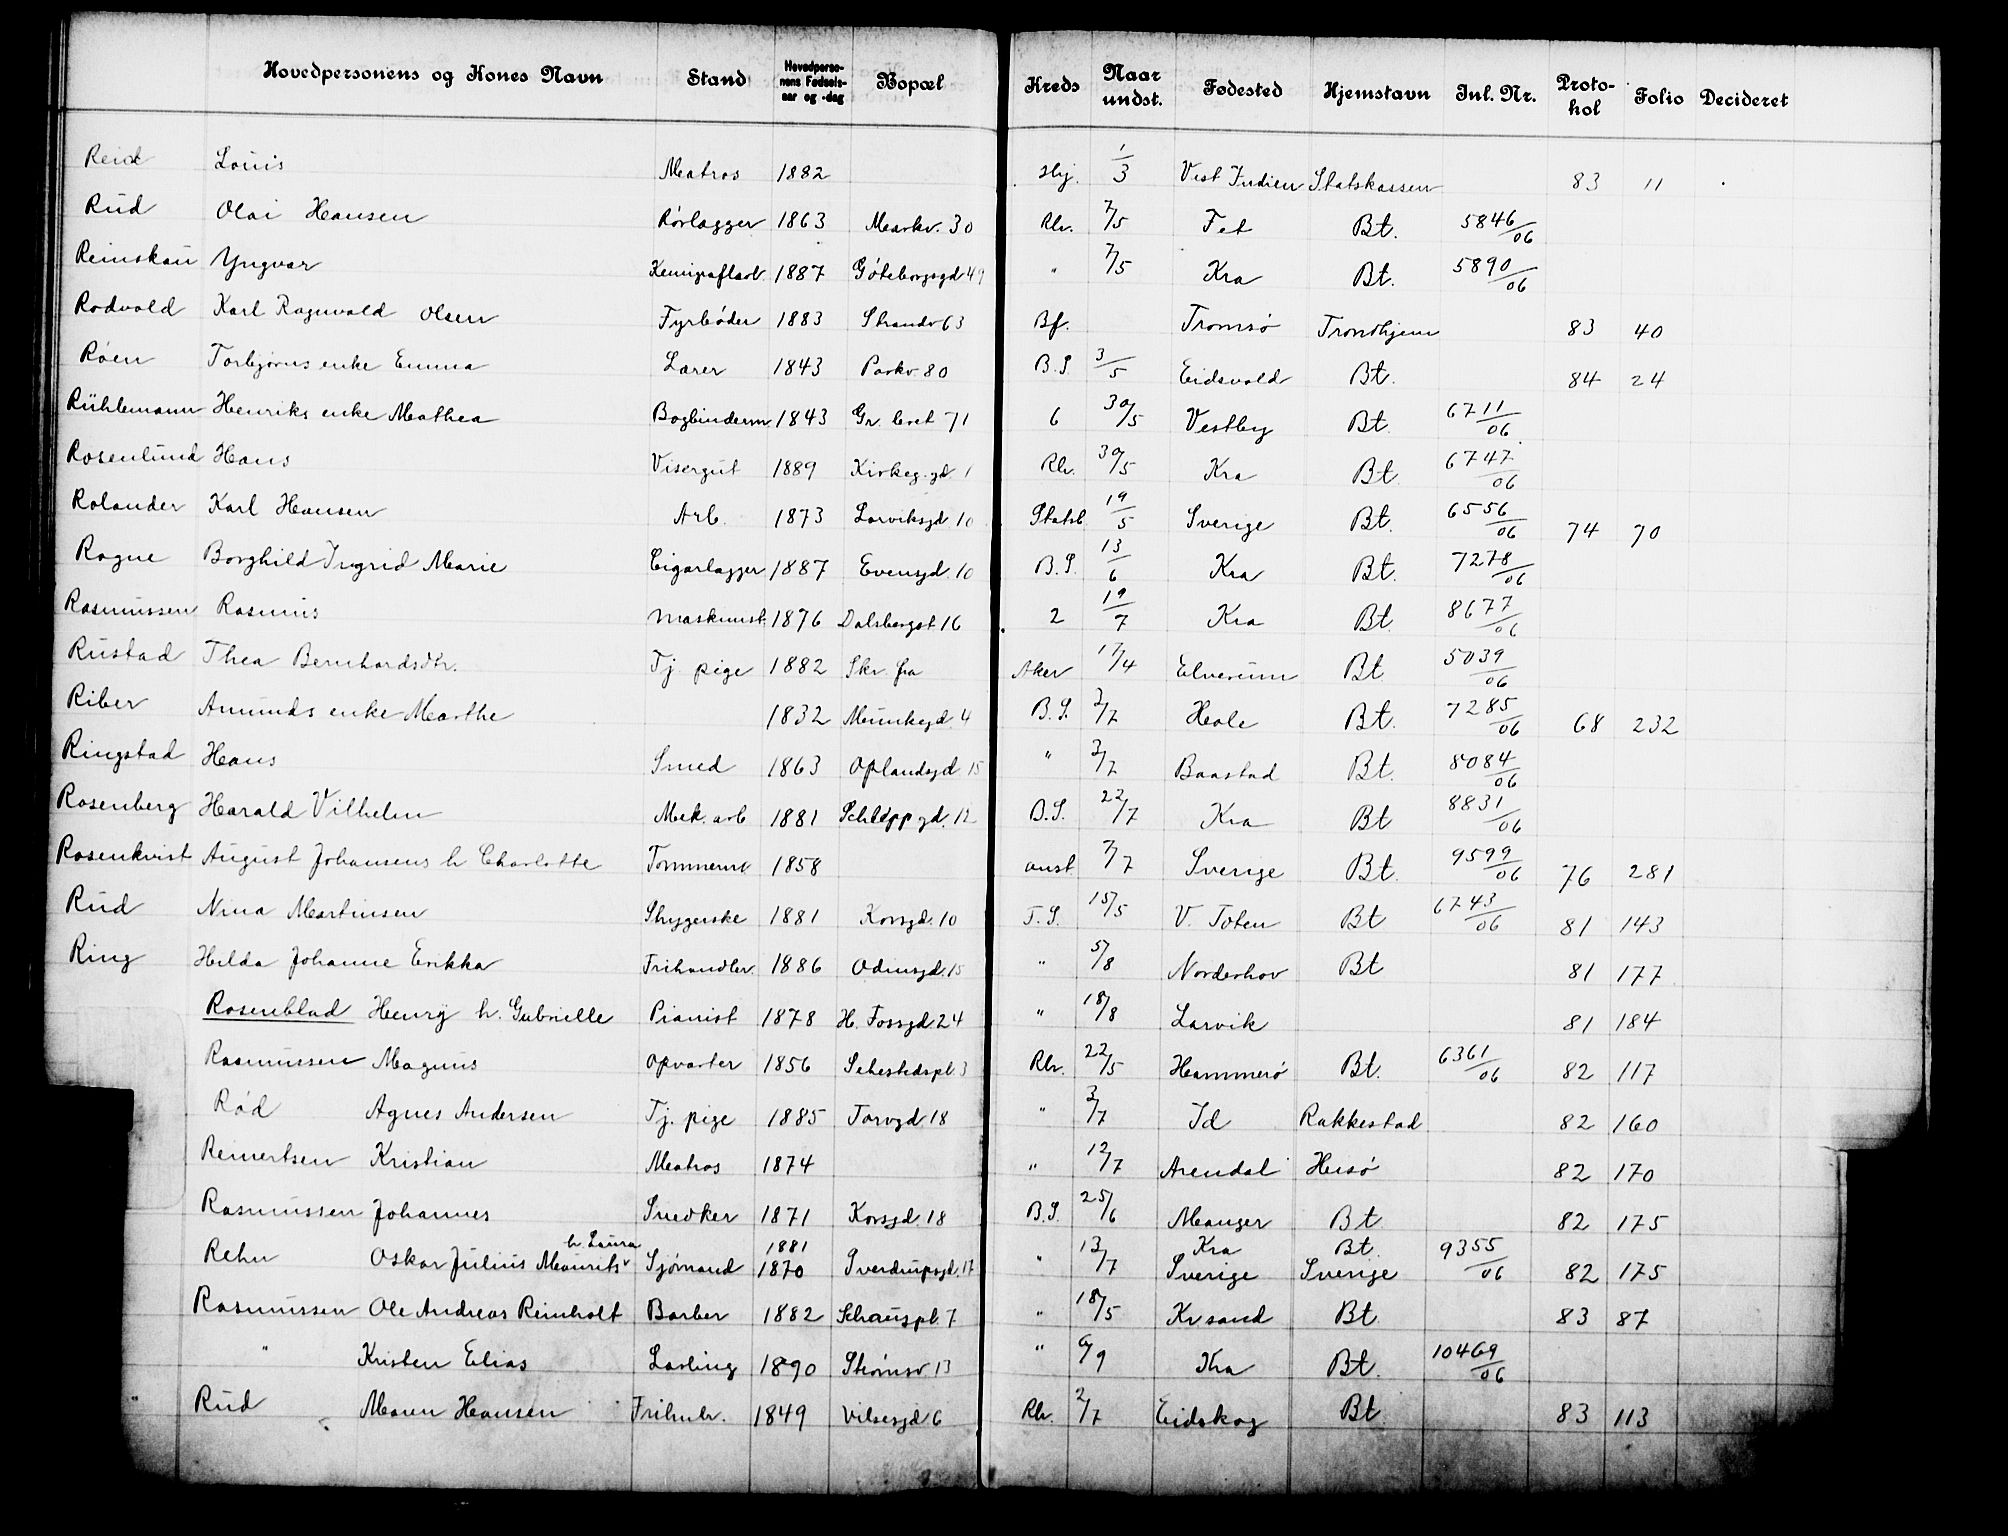 Hovedpersonens og Kones Navn Stand Hovedpersonens Fødselsaar og -dag Bopæl Kreds Naar undst. Fødested Hjemstavn Inl. Nr. Protokol Folio Decideret
Reid Louis Matros 1882 Shj. 1/3 Vest Indien Statskassen 83 11
Rud Olai Hansen Rørlægger 1863 Markv. 30 Rlv. 7/5 Fet Bt. 5846/06
Reinskau Yngvar 1887 Göteborgsgd 49 " 7/5 Kra Bt. 5890/06
Rodvald Karl Ragnvald Olsen Fyrbøder 1883 Strandv 63 Bf. Tromsø Trondhjem 83 40
Røen Torbjørns enke Emma Lærer 1843 Parkv 80 B.S 3/5 Eidsvold Bt. 84 24
Rühlemann Henriks enke Mathea Bogbinderm. 1843 Gr. leret 71 6 30/5 Vestby Bt. 6711/06
Rosenlund Hans Visergut 1889 Kirkeg.gd. 1 Rlv. 30/5 Kra Bt. 6747/06
Rolander Karl Hansen Arb. 1873 Larviksgd 10 Statsb 19/5 Sverige Bt. 6556/06 74 70
Ragne Borghild Ingrid Marie Cigarlægger 1887 Evensgd. 10 B.S. 13/6 Kra Bt. 7278/06
Rasmussen Rasmus Maskinist 1876 Dalsbergst. 16 2 19/7 Kra Bt. 8677/06
Rustad Thea Bernhardsdtr. Tj. pige 1882 Skr. fra Aker 17/4 Elverum Bt 5039/06
Riber Amunds enke Marthe 1832 Munkegd. 4 B.S. 2/7 Hole Bt. 7285/06 68 232
Ringstad Hans Smed 1863 Oplandsgd 15 " 2/7 Baastad Bt. 8084/06
Rosenberg Harald Vilhelm Mek. arb 1881 Schleppgd. 12 B.S. 22/7 Kra Bt 8831/06
Rosenkvist August Johansens h Charlotte Tømmerm 1858 anst. 7/7 Sverige Bt. 9599/06 76 281
Rud Nina Martinsen Skygerske 1881 Korsgd. 10 T.S. 15/5 V. Toten Bt 6743/06 81 143
Ring Hilda Johanne Erikka Frihandler. 1886 Odinsgd. 15 " 5/8 Norderhov Bt 81 177
Rosenblad Henry h. Gabrielle Pianist 1878 H. Fossgd. 24 " 18/8 Larvik 81 184
Rasmussen Magnus Opvarter 1856 Sehestedspl. 3 Rlv. 22/5 Hammerø Bt. 6361/06 82 117
Rød Agnes Andersen Tj. pige 1885 Torvgd 18 " 3/7 Id Rakkestad 82 160
Reinertsen Kristian Matros 1874 " 12/7 Arendal Hisø 82 170
Rasmussen Johannes Snedker 1871 Korsgd. 18 B.S. 25/6 Manger Bt 82 175
h. Laura 1881 Kra Bt.
Rehn Oskar Julius Maurits Sjømand 1870 Sverdrupsgd. 17 " 13/7 Sverige Sverige 9355/06 82 175
Rasmussen Ole Andreas Reinholt Barber 1882 Schauspl. 7 " 18/5 Kr sand Bt. 83 87
" Kristen Elias Lærling 1890 Strømsv. 13 " 6/9 Kra Bt. 10469/06
Rud Maren Hansen Frihnlr. 1849 Vibesgd 6 Rlv. 2/7 Eidskog Bt. 83 113